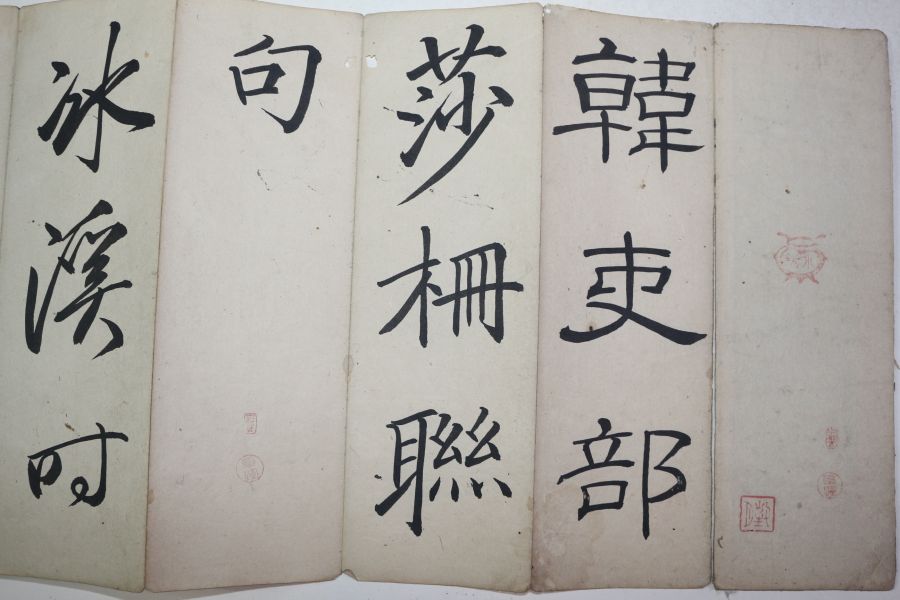 韓吏部
莎柵聯
句
冰溪時